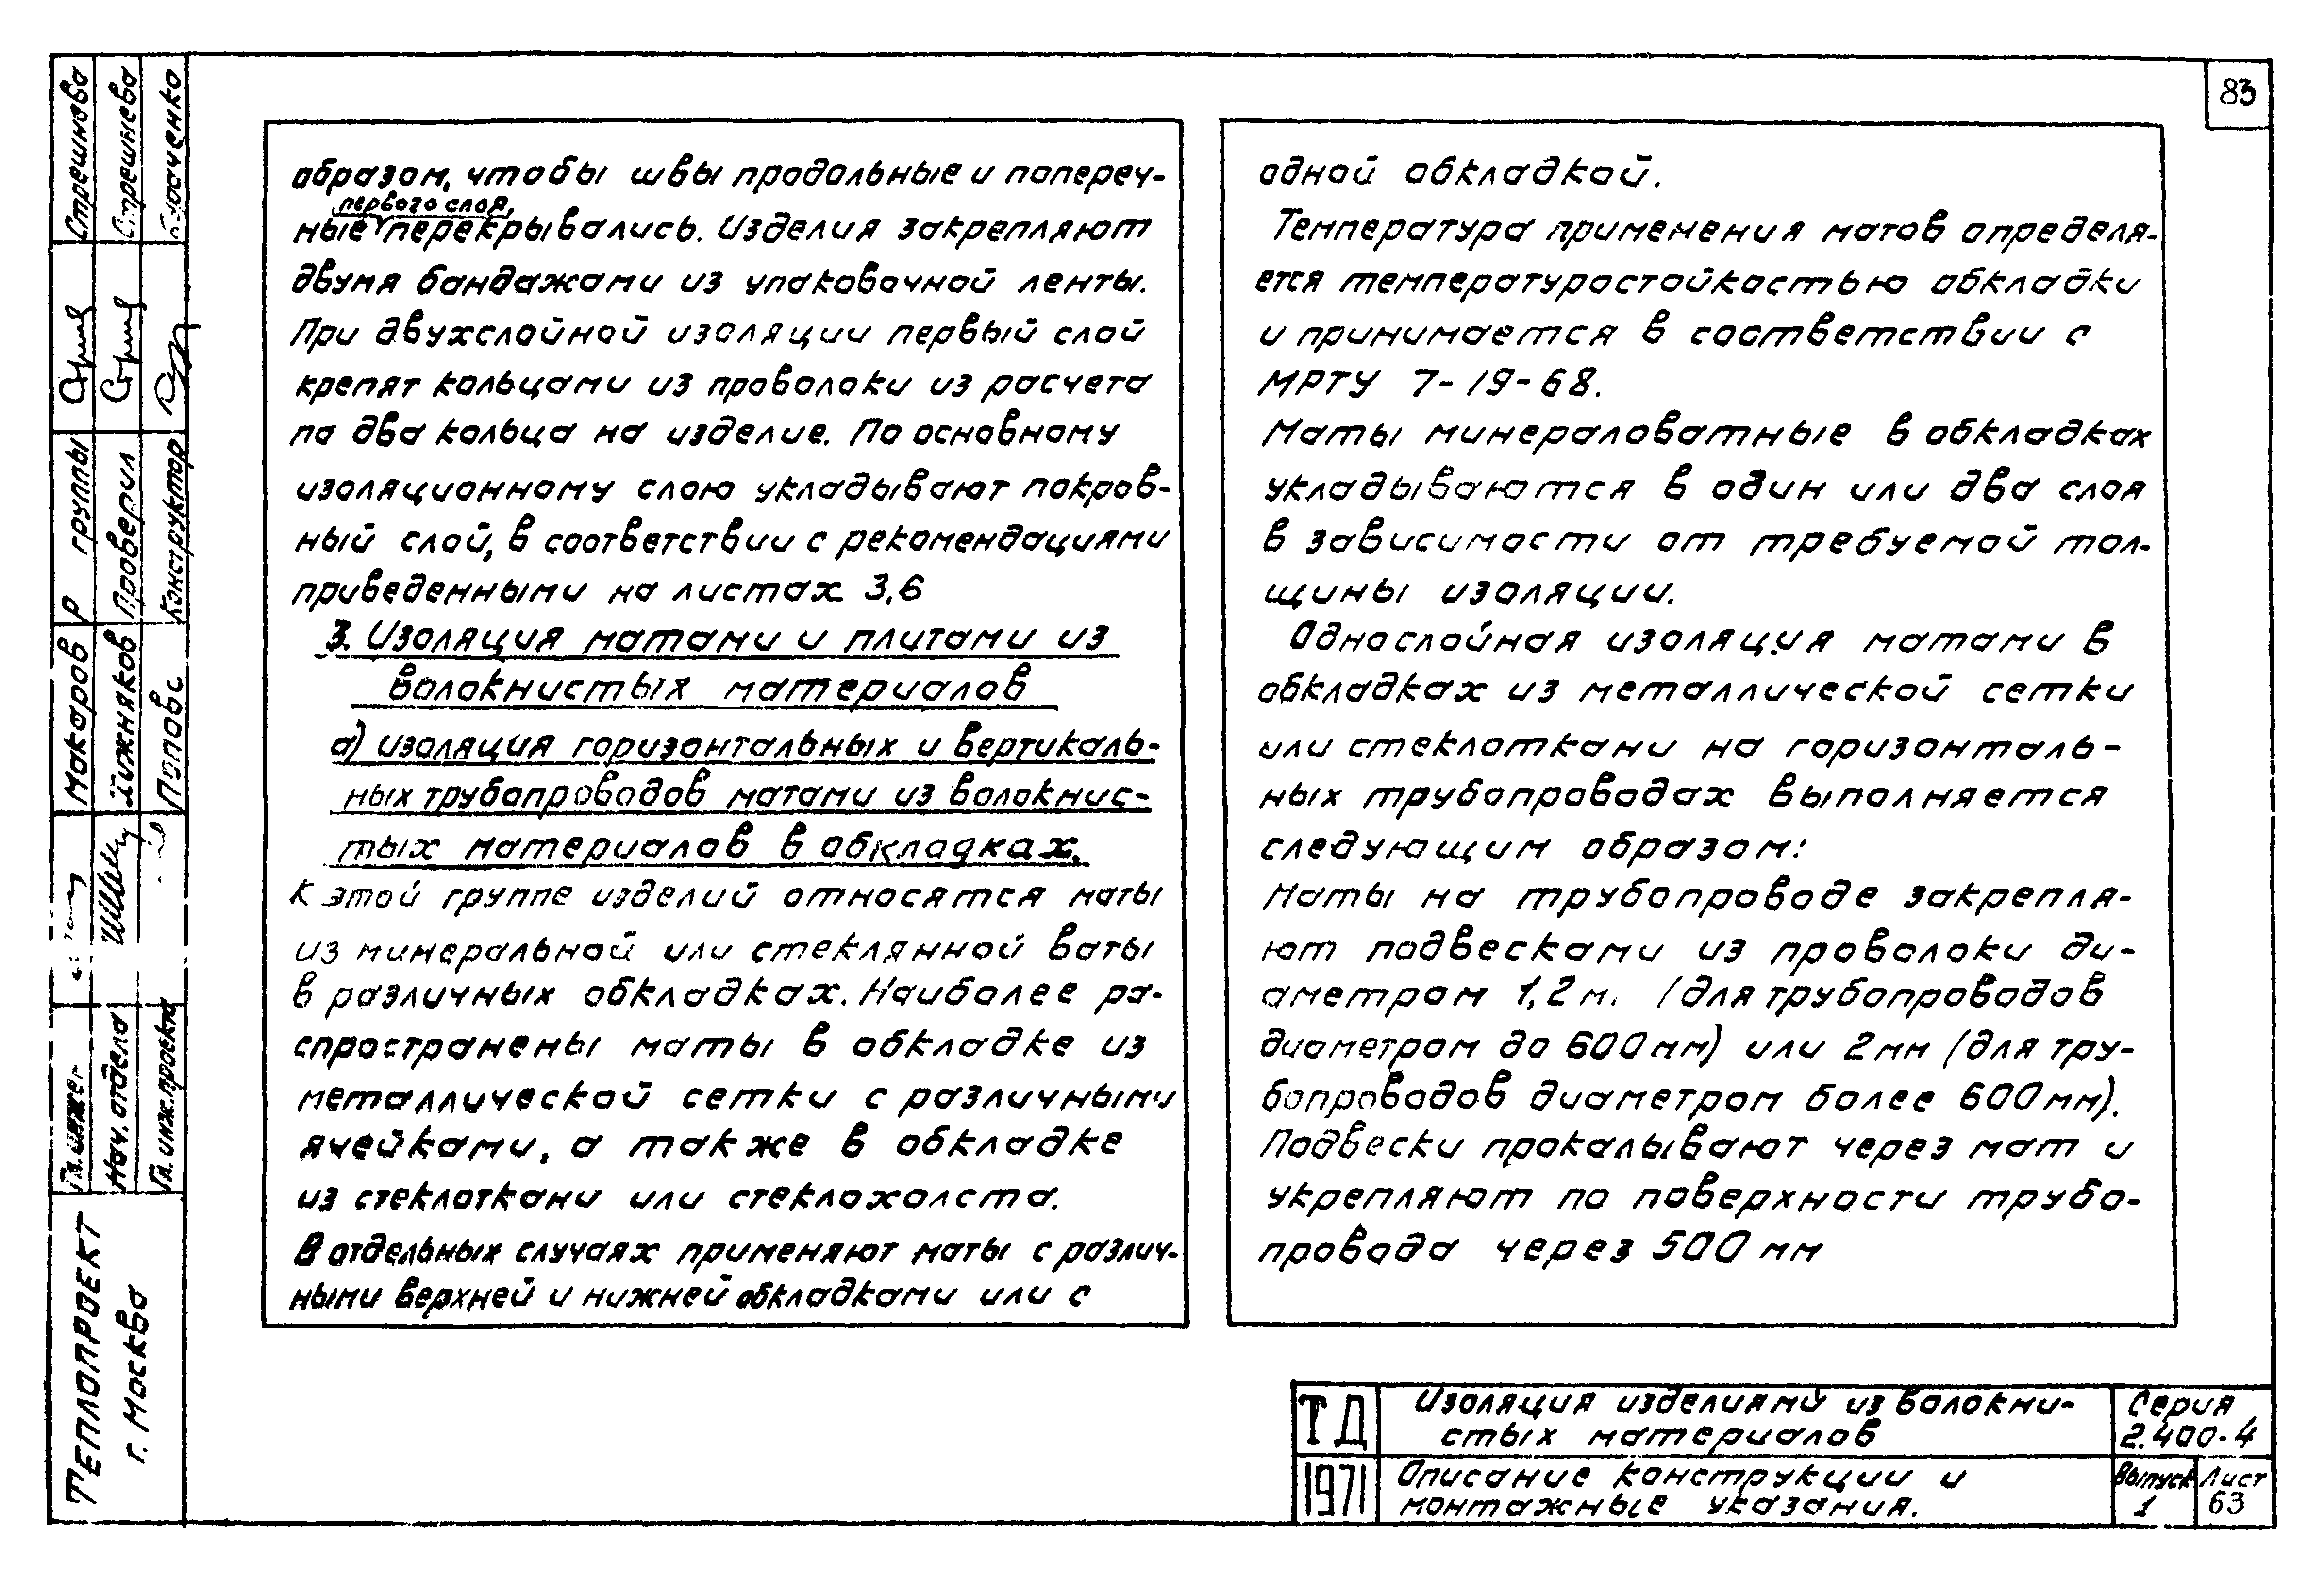 83
образом, чтобы швы продольные и попереч-
первого слоя,
ные перекрывались. Изделия закрепляют
двумя бандажами из упаковочной ленты.
При двухслойной изоляции первый слой
крепят кольцами из проволоки из расчета
по два кольца на изделие. По основному
изоляционному слою укладывают покров-
ный слой, в соответствии с рекомендациями
приведенными на листах 3,6
3. Изоляция матами и плитами из
волокнистых материалов
а) изоляция горизонтальных и вертикаль-
ных трубопроводов матами из волокнис-
тых материалов в обкладках.
К этой группе изделий относятся маты
из минеральной или стеклянной ваты
в различных обкладках. Наиболее ра-
спространены маты в обкладке из
металлической сетки с различными
ячейками, а также в обкладке
из стеклоткани или стеклохолста.
В отдельных случаях применяют маты с различ-
ными верхней и нижней обкладками или с
одной обкладкой.
Температура применения матов определя-
ется температуростойкостью обкладки
и принимается в соответствии с
МРТУ 7-19-68.
Маты минераловатные в обкладках
укладываются в один или два слоя
в зависимости от требуемой тол-
щины изоляции.
Однослойная изоляция матами в
обкладках из металлической сетки
или стеклоткани на горизонталь-
ных трубопроводах выполняется
следующим образом:
Маты на трубопроводе закрепля-
ют подвесками из проволоки ди-
аметром 1,2 м. (для трубопроводов
диаметром до 600 мм) или 2 мм (для тру-
бопроводов диаметром более 600 мм).
Подвески прокалывают через мат и
укрепляют по поверхности трубо-
провода через 500 мм
ТД
Изоляция изделиями из волокни-
стых материалов
Серия
2.400-4
1971
Описание конструкции и
монтажные указания.
Выпуск
1
Лист
63
Теплопроект
г. Москва
Гл. инже- Макаров Р группы Стрешнева
Нач. отдела Хижняков Проверил Стрешнева
Гл. инж. проекта Попов Конструктор